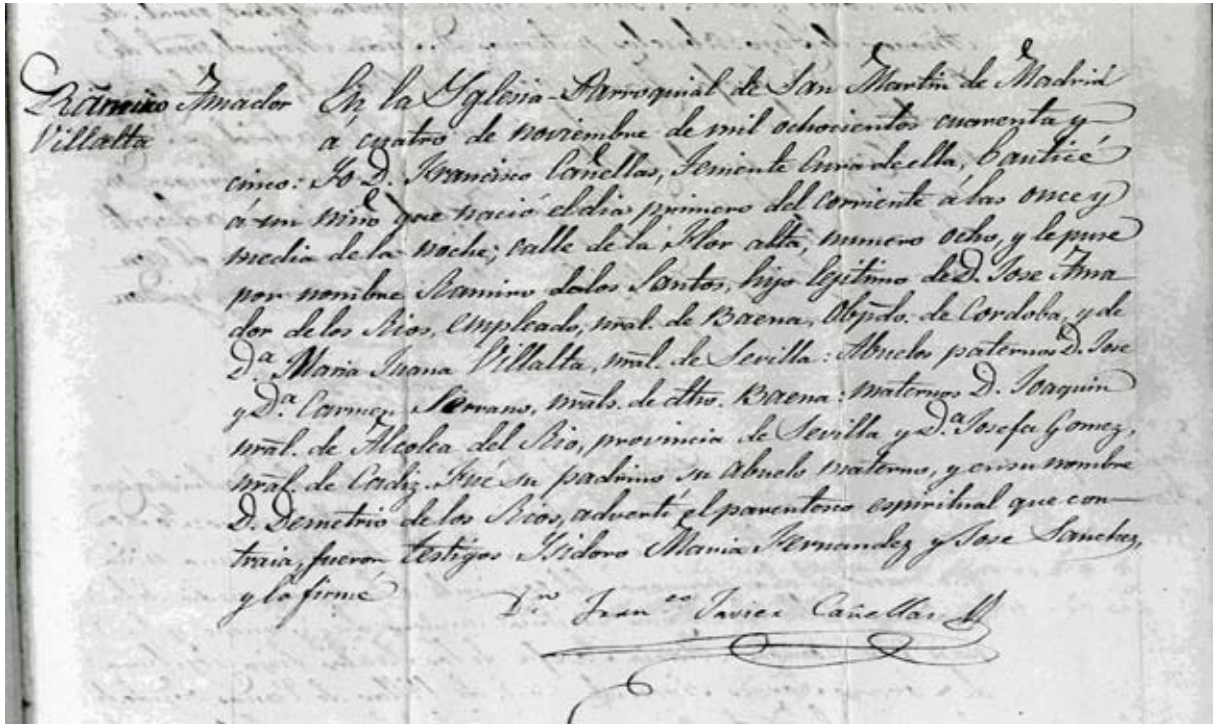 Ramiro Amador
Villalta
En la Yglesia Parroquial de San Martin de Madrid
a cuatro de noviembre de mil ochocientos cuarenta y
cinco: Yo D. Francisco Cañellas, Teniente Cura de ella, bauticé
á un niño que nació el dia primero del corriente á las once y
media de la noche; calle de la Flor alta, numero ocho, y le puse
por nombre Ramiro de los Santos, hijo legitimo de D. Jose Ama-
dor de los Rios, empleado, nral. de Baena, Obpdo. de Cordoba, y de
D.ª Maria Juana Villalta, nral. de Sevilla: Abuelos paternos D. Jose
y D.ª Carmen Serrano, nrals. de dho. Baena: maternos D. Joaquin
nral. de Alcolea del Rio, provincia de Sevilla y D.ª Josefa Gomez,
nral. de Cadiz. Fué su padrino su abuelo materno, y en su nombre
D. Demetrio de los Rios, advertí el parentesco espiritual que con-
traia, fueron testigos Isidoro Maria Fernandez y Jose Sanchez,
y lo firmé
Dn. Franco. Javier Cañellas